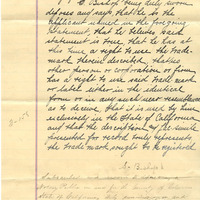 C. Bishop being duly sworn
deposes and says that he is the
applicant named in the foregoing
statement that he believes said
statement is true, that he has at
this time a right to use the trade-
mark therein described, that no
other person or corporation or firm
has a right to use said trade mark
or label either in the identical
form or in any such near resemblance
as to deceive, that it is used by him
exclusively in the State of California
and that the description & fac-simile
presented for record truly represents
the trade mark sought to be registered
Bishop
Subscribed and sworn to before me